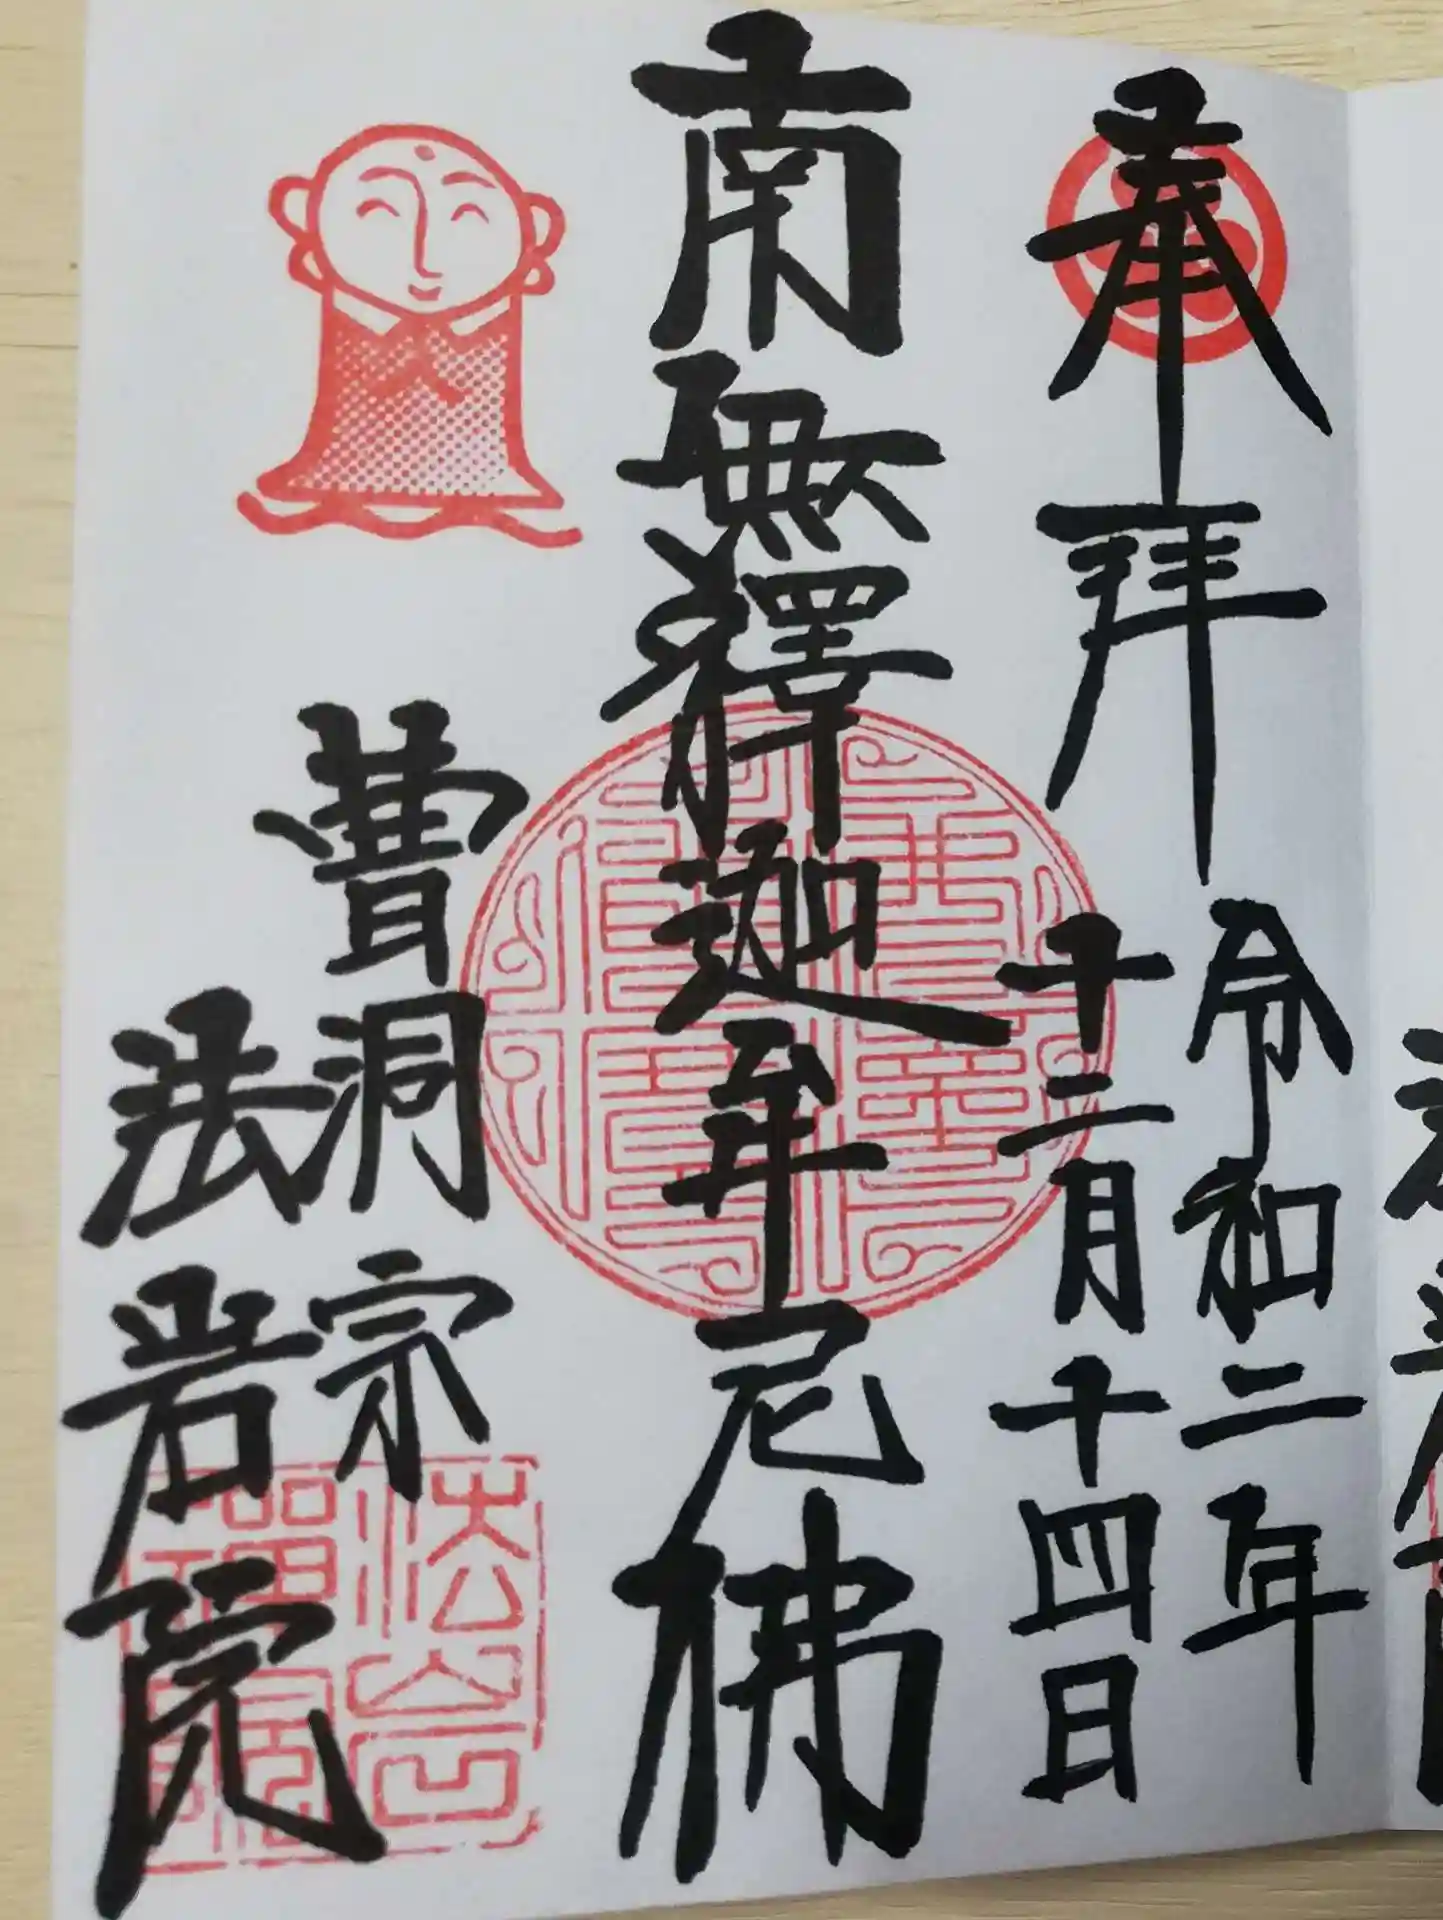 奉拜
令和二年
十二月十四日
南無釋迦牟尼佛
曹洞宗
法岩院